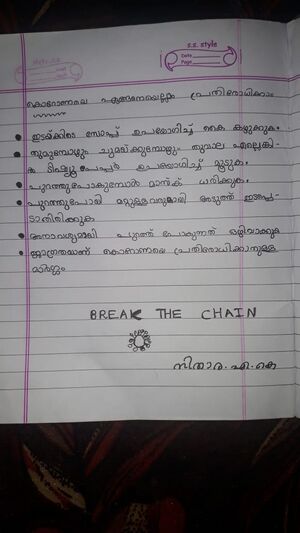 s.s. style
Date
Page
കൊറോണയെ എങ്ങനെയെല്ലാം പ്രതിരോധിക്കാം
ഇടയ്ക്കിടെ സോപ്പ് ഉപയോഗിച്ച് കൈ കഴുകുക.
തുമ്മുമ്പോഴും ചുമയ്ക്കുമ്പോഴും തുവാല അല്ലെങ്കി-
ൽ ടിഷ്യുപേപ്പർ ഉപയോഗിച്ച് മൂടുക.
പുറത്തുപോകുമ്പോൾ മാസ്ക് ധരിക്കുക.
പുറത്തുപോയി മറ്റുള്ളവരുമായി അടുത്ത് ഇടപഴ-
കാതിരിക്കുക
അനാവശ്യമായി പുറത്ത് പോകുന്നത് ഒഴിവാക്കുക
ജാഗ്രതയാണ് കൊറോണയെ പ്രതിരോധിക്കാനുള്ള
മാർഗ്ഗം
BREAK THE CHAIN
സിതാര. എ. കെ